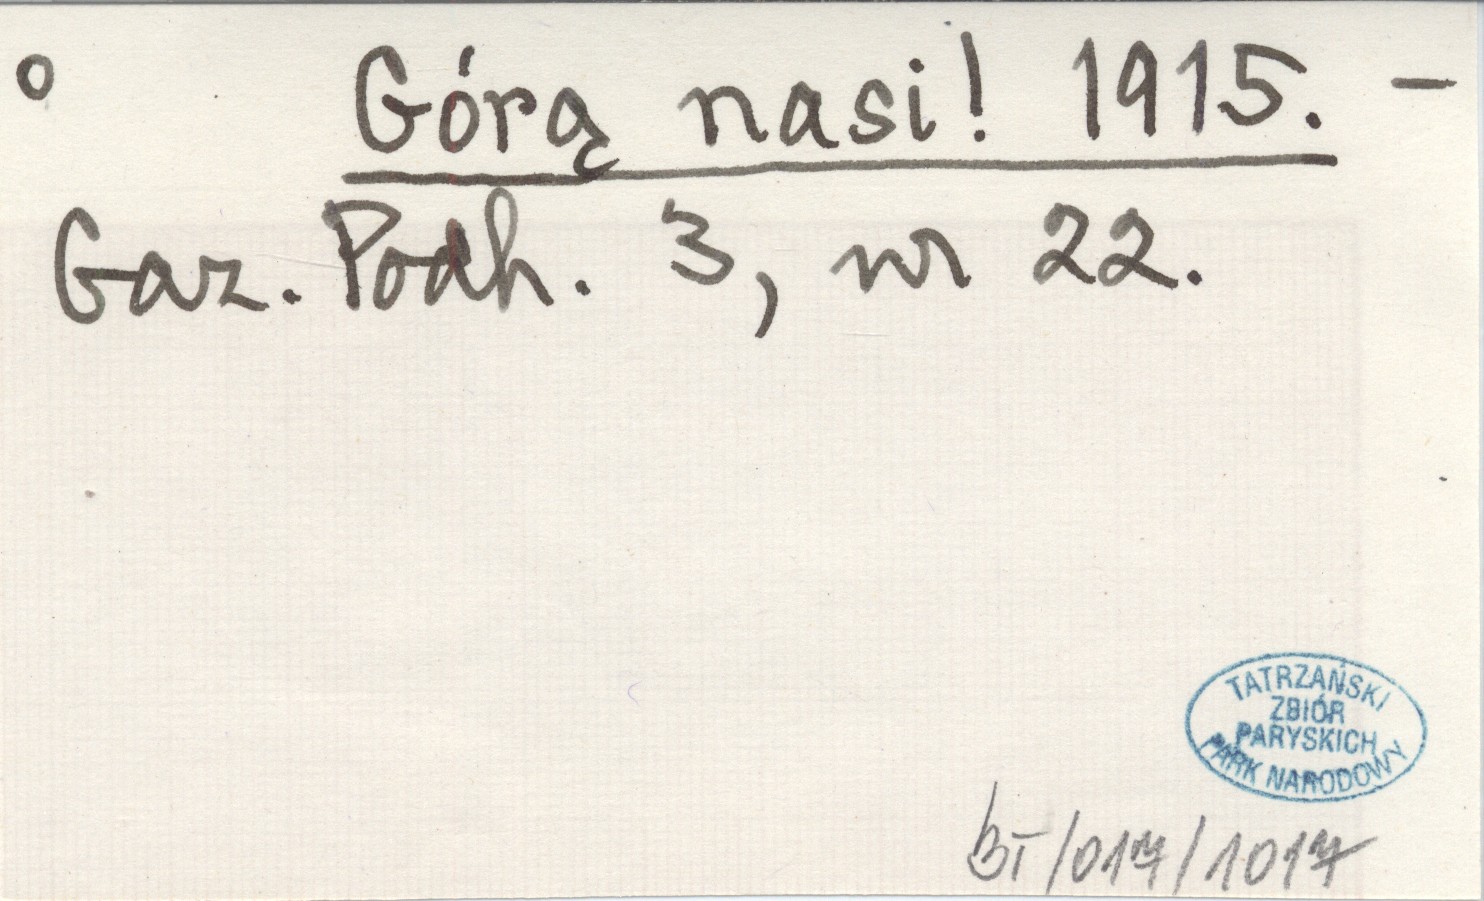 o Górą nasi! 1915. –
Gaz. Podh. 3, nr 22.
TATRZAŃSKI
ZBIÓR
PARYSKICH
PARK NARODOWY
BT/017/1017